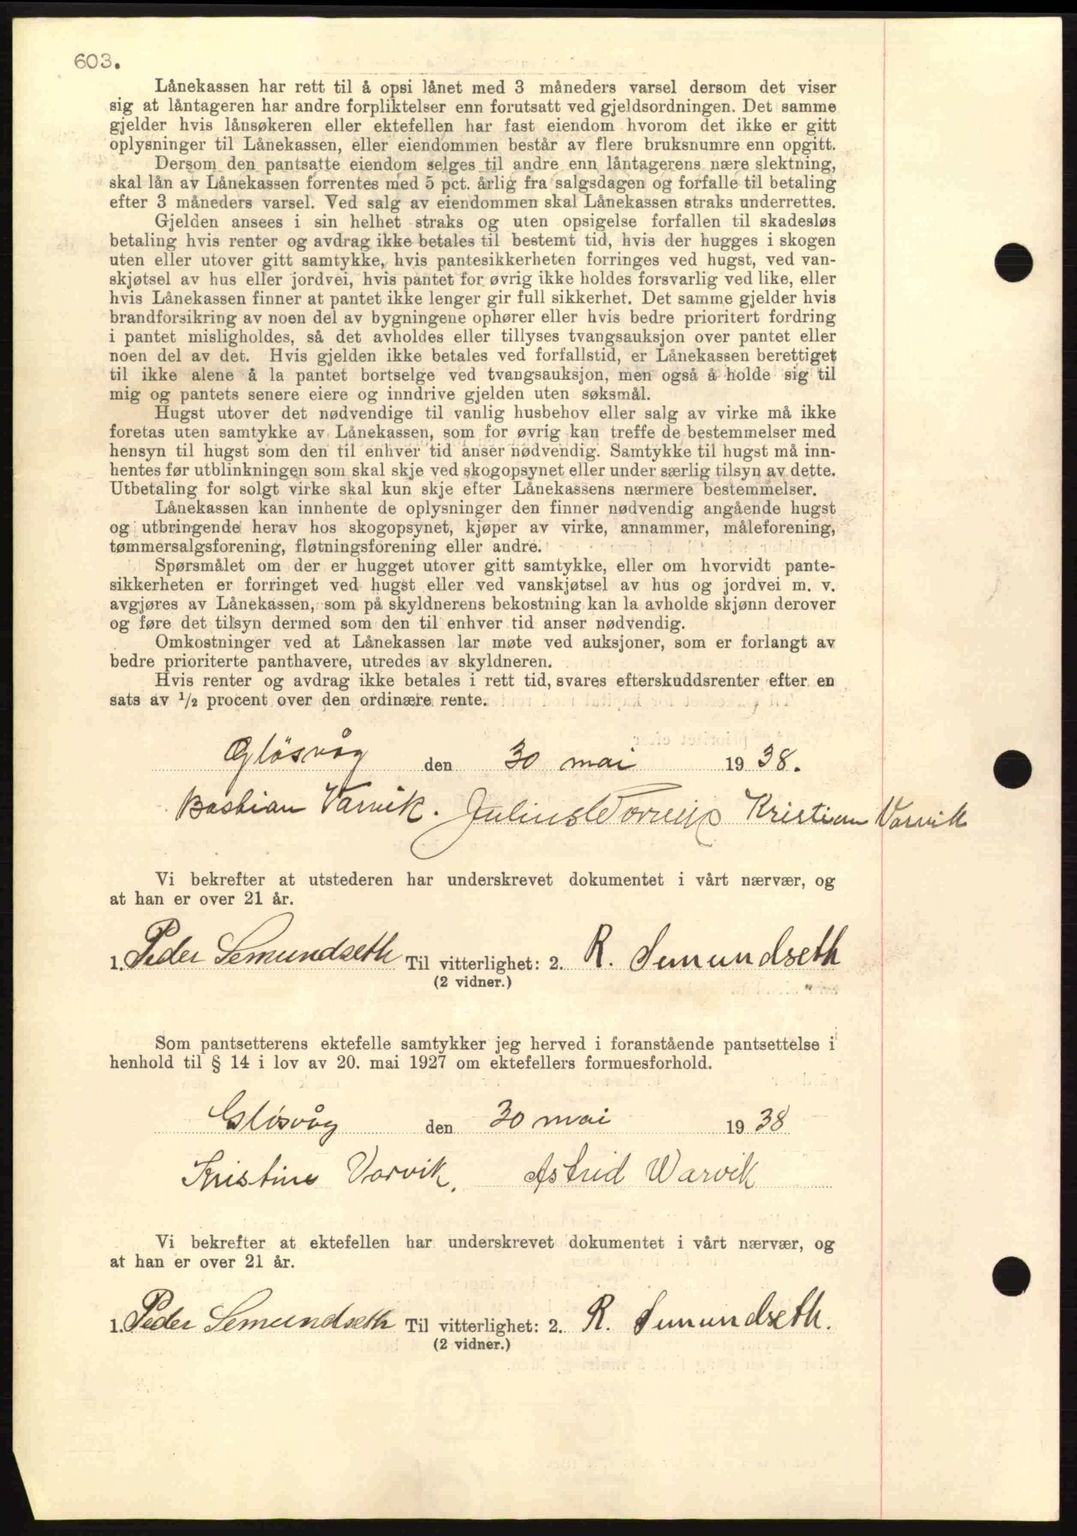 603.
Lånekassen har rett til å opsi lånet med 3 måneders varsel dersom det viser
sig at låntageren har andre forpliktelser enn forutsatt ved gjeldsordningen. Det samme
gjelder hvis lånsøkeren eller ektefellen har fast eiendom hvorom det ikke er gitt
oplysninger til Lånekassen, eller eiendommen består av flere bruksnumre enn opgitt.
Dersom den pantsatte eiendom selges til andre enn låntagerens nære slektning,
skal lån av Lånekassen forrentes med 5 pct. årlig fra salgsdagen og forfalle til betaling
efter 3 måneders varsel. Ved salg av eiendommen skal Lånekassen straks underrettes.
Gjelden ansees i sin helhet straks og uten opsigelse forfallen til skadesløs
betaling hvis renter og avdrag ikke betales til bestemt tid, hvis der hugges i skogen
uten eller utover gitt samtykke, hvis pantesikkerheten forringes ved hugst, ved van-
skjøtsel av hus eller jordvei, hvis pantet for øvrig ikke holdes forsvarlig ved like, eller
hvis Lånekassen finner at pantet ikke lenger gir full sikkerhet. Det samme gjelder hvis
brandforsikring av noen del av bygningene ophører eller hvis bedre prioritert fordring
i pantet misligholdes, så det avholdes eller tillyses tvangsauksjon over pantet eller
noen del av det. Hvis gjelden ikke betales ved forfallstid, er Lånekassen berettiget
til ikke alene å la pantet bortselge ved tvangsauksjon, men også å holde sig til
mig og pantets senere eiere og inndrive gjelden uten søksmål.
Hugst utover det nødvendige til vanlig husbehov eller salg av virke må ikke
foretas uten samtykke av Lånekassen, som for øvrig kan treffe de bestemmelser med
hensyn til hugst som den til enhver tid anser nødvendig. Samtykke til hugst må inn-
hentes før utblinkningen som skal skje ved skogopsynet eller under særlig tilsyn av dette.
Utbetaling for solgt virke skal kun skje efter Lånekassens nærmere bestemmelser.
Lånekassen kan innhente de oplysninger den finner nødvendig angående hugst
og utbringende herav hos skogopsynet, kjøper av virke, annammer, måleforening,
tømmersalgsforening, fløtningsforening eller andre.
Spørsmålet om der er hugget utover gitt samtykke, eller om hvorvidt pante-
sikkerheten er forringet ved hugst eller ved vanskjøtsel av hus og jordvei m. v.
avgjøres av Lånekassen, som på skyldnerens bekostning kan la avholde skjønn derover
og føre det tilsyn dermed som den til enhver tid anser nødvendig.
Omkostninger ved at Lånekassen lar møte ved auksjoner, som er forlangt av
bedre prioriterte panthavere, utredes av skyldneren.
Hvis renter og avdrag ikke betales i rett tid, svares efterskuddsrenter efter en
sats av 1/2 procent over den ordinære rente.
Glösvåg den 30 mai 1938.
Bastian Varvik. Julius Kristian Varvik
Vi bekrefter at utstederen har underskrevet dokumentet i vårt nærvær, og
at han er over 21 år.
1. Peder Semundseth Til vitterlighet: 2. R. Semundseth
(2 vidner.)
Som pantsetterens ektefelle samtykker jeg herved i foranstående pantsettelse i
henhold til § 14 i lov av 20. mai 1927 om ektefellers formuesforhold.
Glösvåg den 30 mai 1938
Kristine Varvik. Astrid Warvik
Vi bekrefter at ektefellen har underskrevet dokumentet i vårt nærvær, og
at han er over 21 år.
1. Peder Semundseth Til vitterlighet: 2. R. Semundseth.
(2 vidner.)